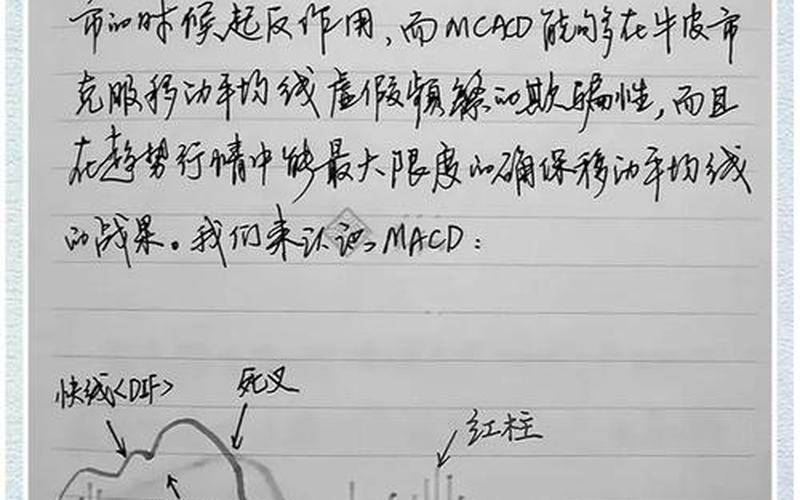 市的时候起反作用,而MCACD能够在牛皮市
克服移动平均线虚假频繁的欺骗性,而且
在趋势行情中能最大限度的确保移动平均线
的战果。我们来认识MACD:
快线<DIF>
死叉
红柱